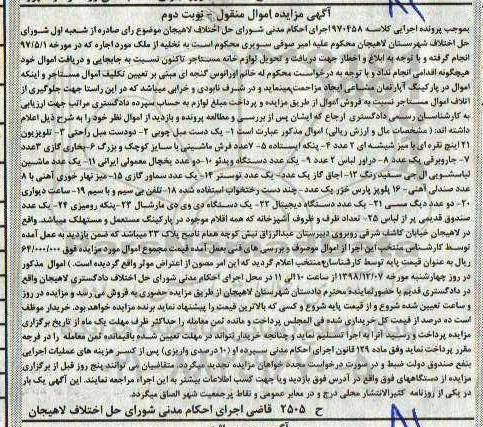 آگهی مزایده اموال منقول - نوبت دوم
بموجب پرونده اجرایی کلاسه ۹۷۰۴۵۸ اجرای احکام مدنی شورای حل اختلاف لاهیجان موضوع رای صادره از شعبه اول شورای
حل اختلاف شهرستان لاهیجان محکوم علیه امیر صوفی سویری محکوم است به تخلیه از ملک مورد اجاره که در مورخه ۹۷/۵/۱
انجام گرفته و با توجه به ابلاغ و اخطار جهت دریافت و تحویل لوازم خانه مستاجر تاکنون نسبت به جابجایی و دریافت اموال خود
هیچگونه اقدامی انجام نداد و با توجه به درخواست محکوم له خانم اورانوس گنجه ای مبنی بر تعیین تکلیف اموال مستاجر و اینکه
اموال در پارکینگ آپارتمان مشاعی ایجاد مزاحمت مینماید و در شرف نابودی و خرابی میباشد که در این راستا جهت جلوگیری از
اتلاف اموال مستاجر نسبت به فروش اموال از طریق مزایده و پرداخت مبلغ لوازم به حساب سپرده دادگستری مراتب جهت ارزیابی
به کارشناسان رسمی دادگستری ارجاع که ایشان پس از بررسی و مطالعه پرونده و بازدید از اموال نظر خود را به شرح ذیل اعلام
داشته اند: ( مشخصات مال و ارزش ریالی) اموال مذکور عبارت است ۱- یک دست مبل چوبی ۲- دودست مبل راحتی ۳- تلویزیون
۲۱ اینچ نقره ای با میز شیشه ای ۲ عدد ۴- پنکه ایستاده ۵- ۷ عدد فرش ماشینی با سایز کوچک و بزرگ ۶- بخاری گازی ۳ عدد
۷- جاروبرقی یک عدد ۸- دراور لباس ۲ عدد ۹- یک عدد دستگاه ویدئو ۱۰- دو عدد یخچال معمولی ایرانی ۱۱- یک عدد ماشین
لباسشویی ال جی سفید رنگ ۱۲- اجاق گاز یک عدد ۱۳- یک عدد توستر ۱۴- یک عدد سماور گازی ۱۵- میز نهار خوری آهنی با ۸
عدد صندلی آهنی ۱۶- پلوپز پارس خزر یک عدد - چند دست رختخواب استفاده شده ۱۸- تلفن بی سیم و با سیم ۱۹- ساعت دیواری
۲۰- دو عدد دیگ مسی ۲۱- یک عدد دستگاه دیجیتال ۲۲- یک دستگاه دی وی دی مارشال ۲۳- پنکه رومیزی ۲۴- یک عدد
صندوق قدیمی پر از لباس ۲۵- تعداد ظرف و ظروف آشپزخانه که همه اقلام موجود در پارکینگ مستعمل و مستهلک میباشد. واقع
در لاهیجان خیابان کاشف شرقی روبروی دبیرستان عبدالرزاق نبش کوچه همام ناصح پلاک ۲۳ میباشد که ضمن بازدید به عمل آمده
توسط کارشناس منتخب این اجرا از اموال موصوف و بررسی های فنی بعمل آمده قیمت مجموع اموال مورد مزایده فوق ۶۴/۰۰۰/۰۰۰
ریال به عنوان قیمت پایه توسط کارشناس منتخب اعلام گردید که این امر مصون از اعتراض موثر واقع گردیده است. ) اموال مذکور
در روز چهارشنبه مورخه ۱۳۹۸/۱۲/۰۷ از ساعت ۱۰ الی ۱۱ در محل اجرای احکام مدنی شورای حل اختلاف دادگستری لاهیجان واقع
در دادگستری قدیم با حضور نماینده محترم دادستان شهرستان لاهیجان از طریق مزایده حضوری به فروش می رسد و مزایده در روز
و ساعت تعیین شده شروع و از قیمت پایه شروع و کسی که بالاترین قیمت را پیشنهاد نماید برنده مزایده خواهد بود. خریدار موظف
است ده درصد از قیمت کل خریداری شده فی المجلس پرداخت و مانده ثمن معامله را حداکثر ظرف مهلت یک ماه از تاریخ برگزاری
مزایده پرداخت و رسید آنرا به اجرا تسلیم نماید و چنانچه خریدار نتواند در مهلت تعیین شده باقیمانده ثمن معامله را در فرجه
مقرر پرداخت نماید وفق ماده ۱۲۹ قانون اجرای احکام مدنی سپرده او (۱۰ درصدی واریزی) پس از کسر هزینه های عملیات اجرایی
بنفع صندوق دولت ضبط و در صورت درخواست مجدد خواهان مزایده تجدید میگردد. متقاضیان می توانند پنج روز قبل از برگزاری
مزایده از دستگاههای فوق واقع در آدرس فوق بازدید و یا جهت کسب اطلاعات بیشتر به این اجرا مراجعه نمایند. این آگهی یک بار
در یکی از روزنامه کثیرالانتشار محلی درج و در معابر عمومی و نقاط پرجمعیت شهر الصاق میگردد.
ح ۲۵۰۵ قاضی اجرای احکام مدنی شورای حل اختلاف لاهیجان